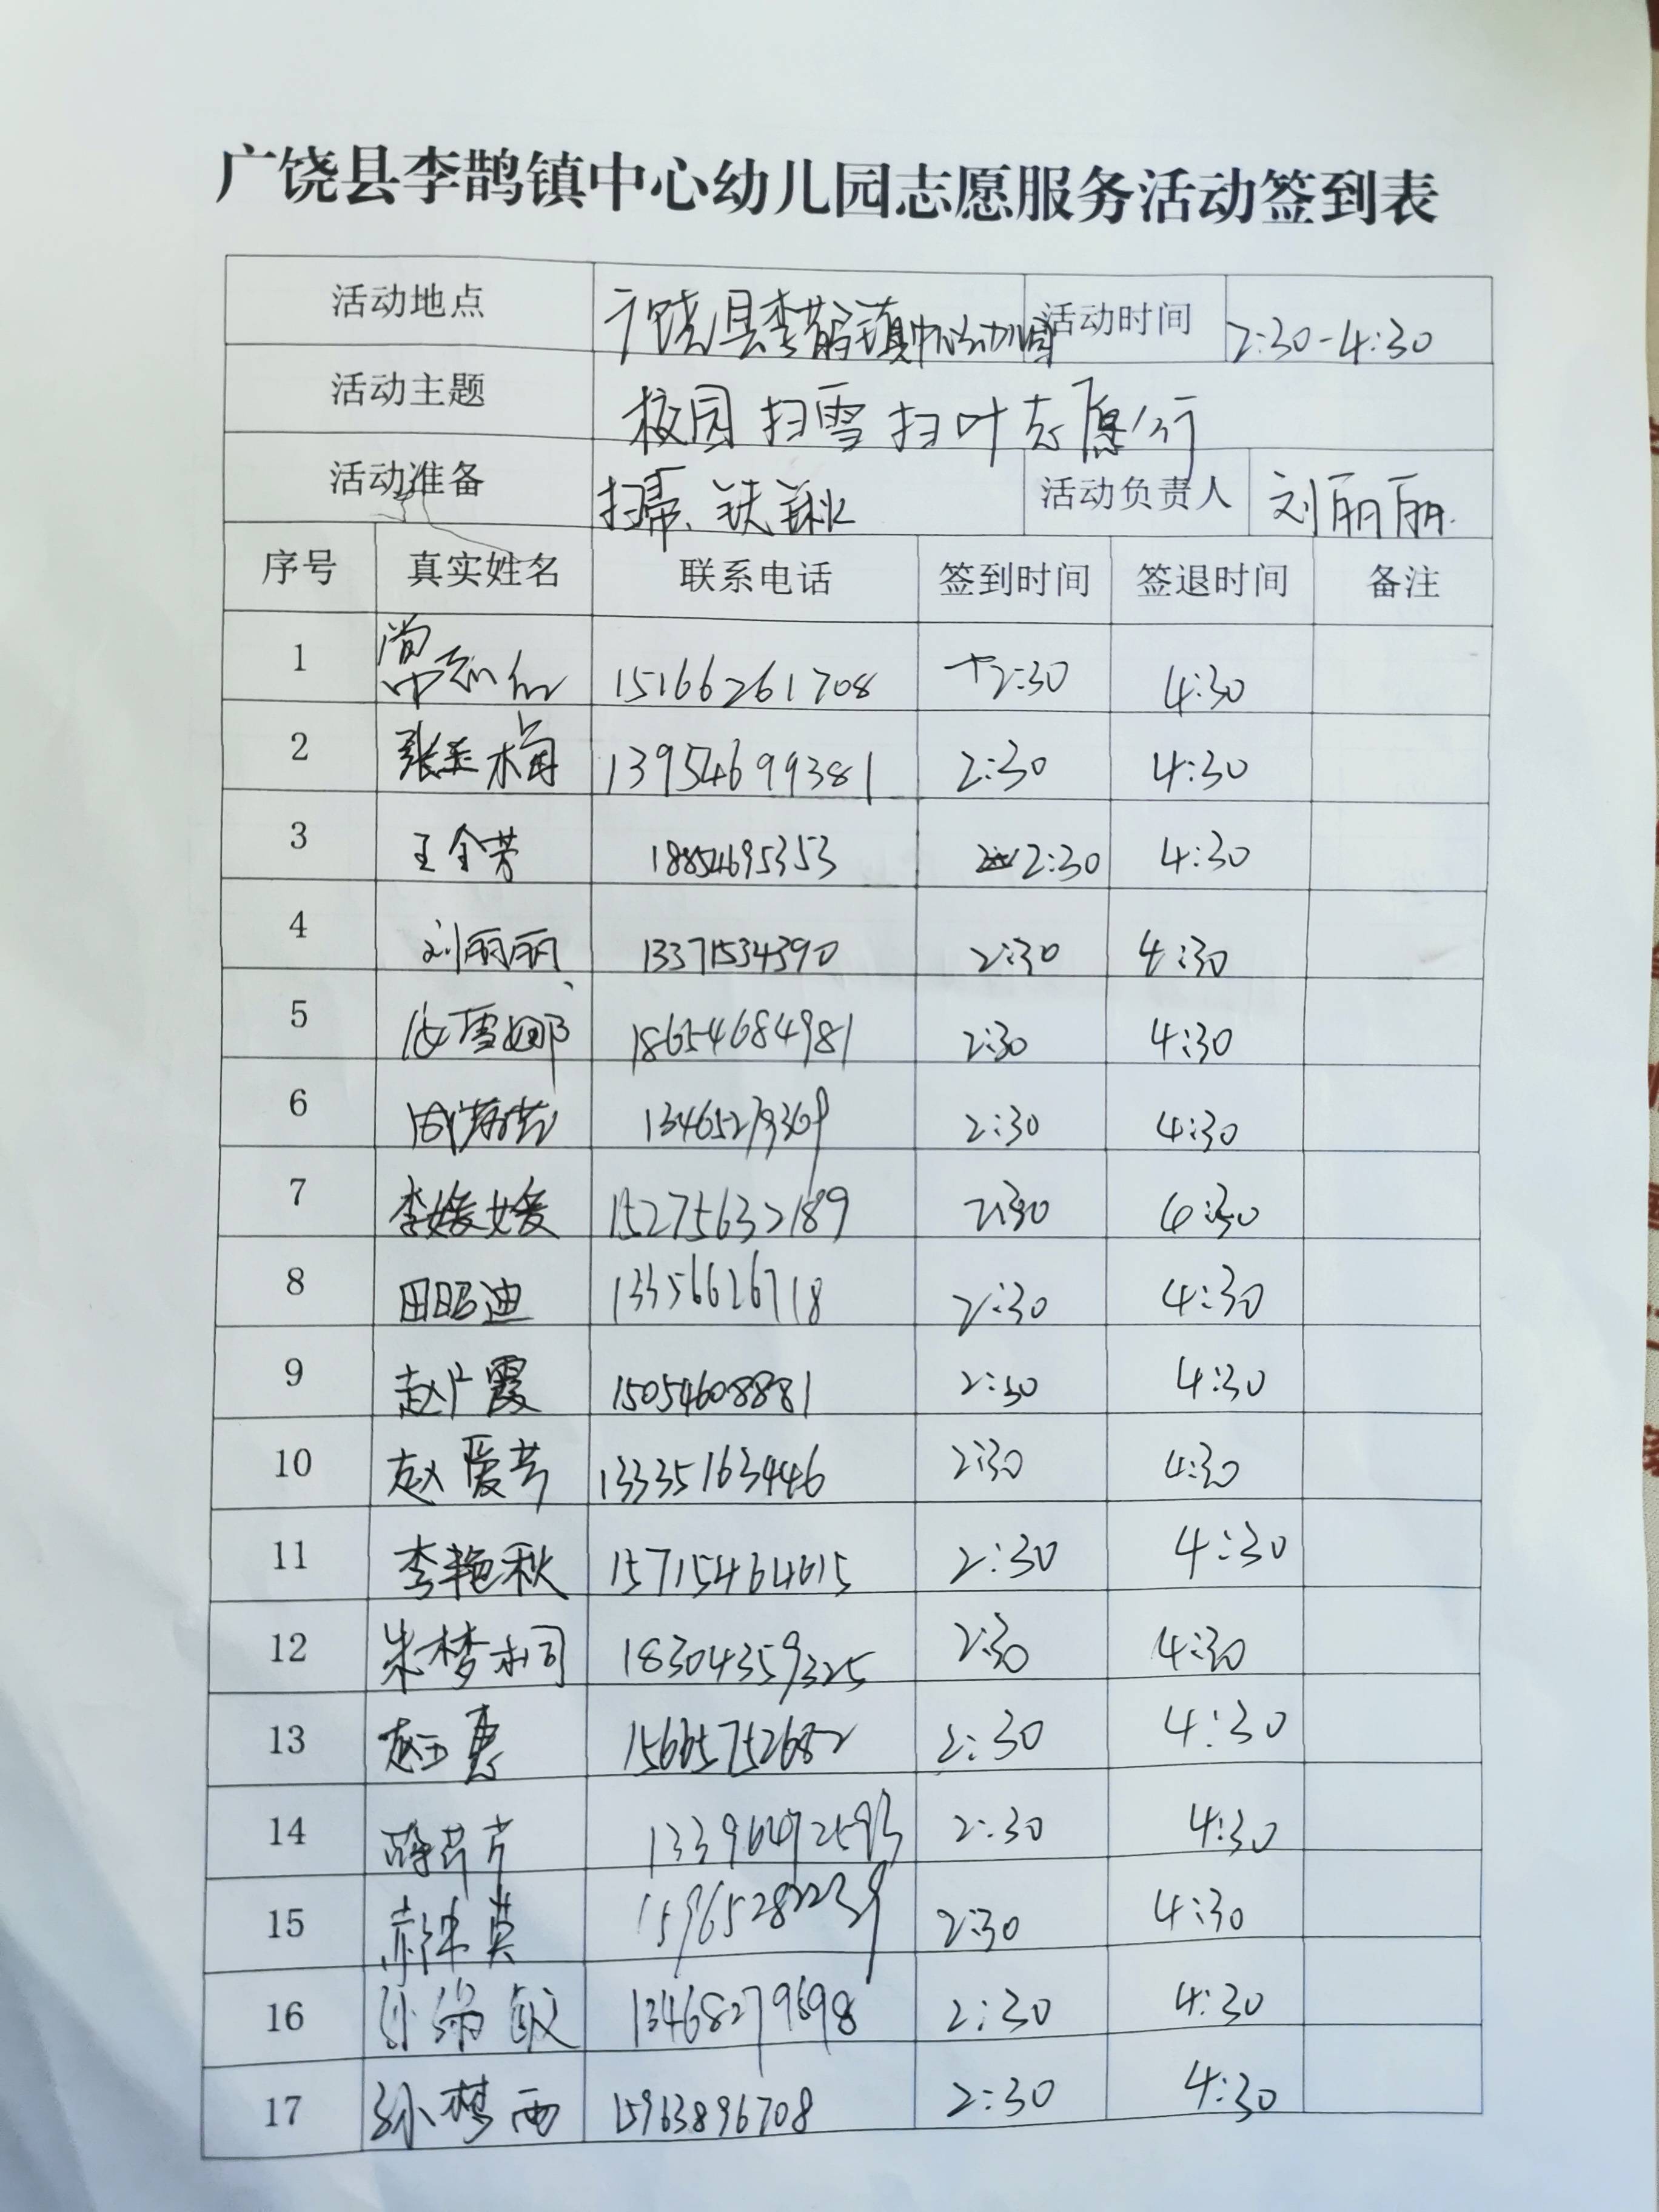 广饶县李鹊镇中心幼儿园志愿服务活动签到表
活动地点 广饶县李鹊镇中心幼儿园 活动时间 2:30-4:30
活动主题 校园扫雪扫叶志愿行
活动准备 扫帚、铁锹 活动负责人 刘丽丽
序号 真实姓名 联系电话 签到时间 签退时间 备注
1 15166261708 2:30 4:30
2 张玉梅 13954699381 2:30 4:30
3 王金芳 18854695353 2:30 4:30
4 刘丽丽 13371534390 2:30 4:30
5 雪娜 18654684981 2:30 4:30
6 13465279369 2:30 4:30
7 李媛媛 15275632189 2:30 4:30
8 田昭迪 13356626718 2:30 4:30
9 赵广霞 15054608881 2:30 4:30
10 赵爱芳 13335163446 2:30 4:30
11 李艳秋 15715464615 2:30 4:30
12 朱梦桐 18304359325 2:30 4:30
13 赵玉惠 15665752682 2:30 4:30
14 薛芹芹 13396492593 2:30 4:30
15 15965282239 2:30 4:30
16 孙绵敏 13468279598 2:30 4:30
17 孙梦西 15963896708 2:30 4:30